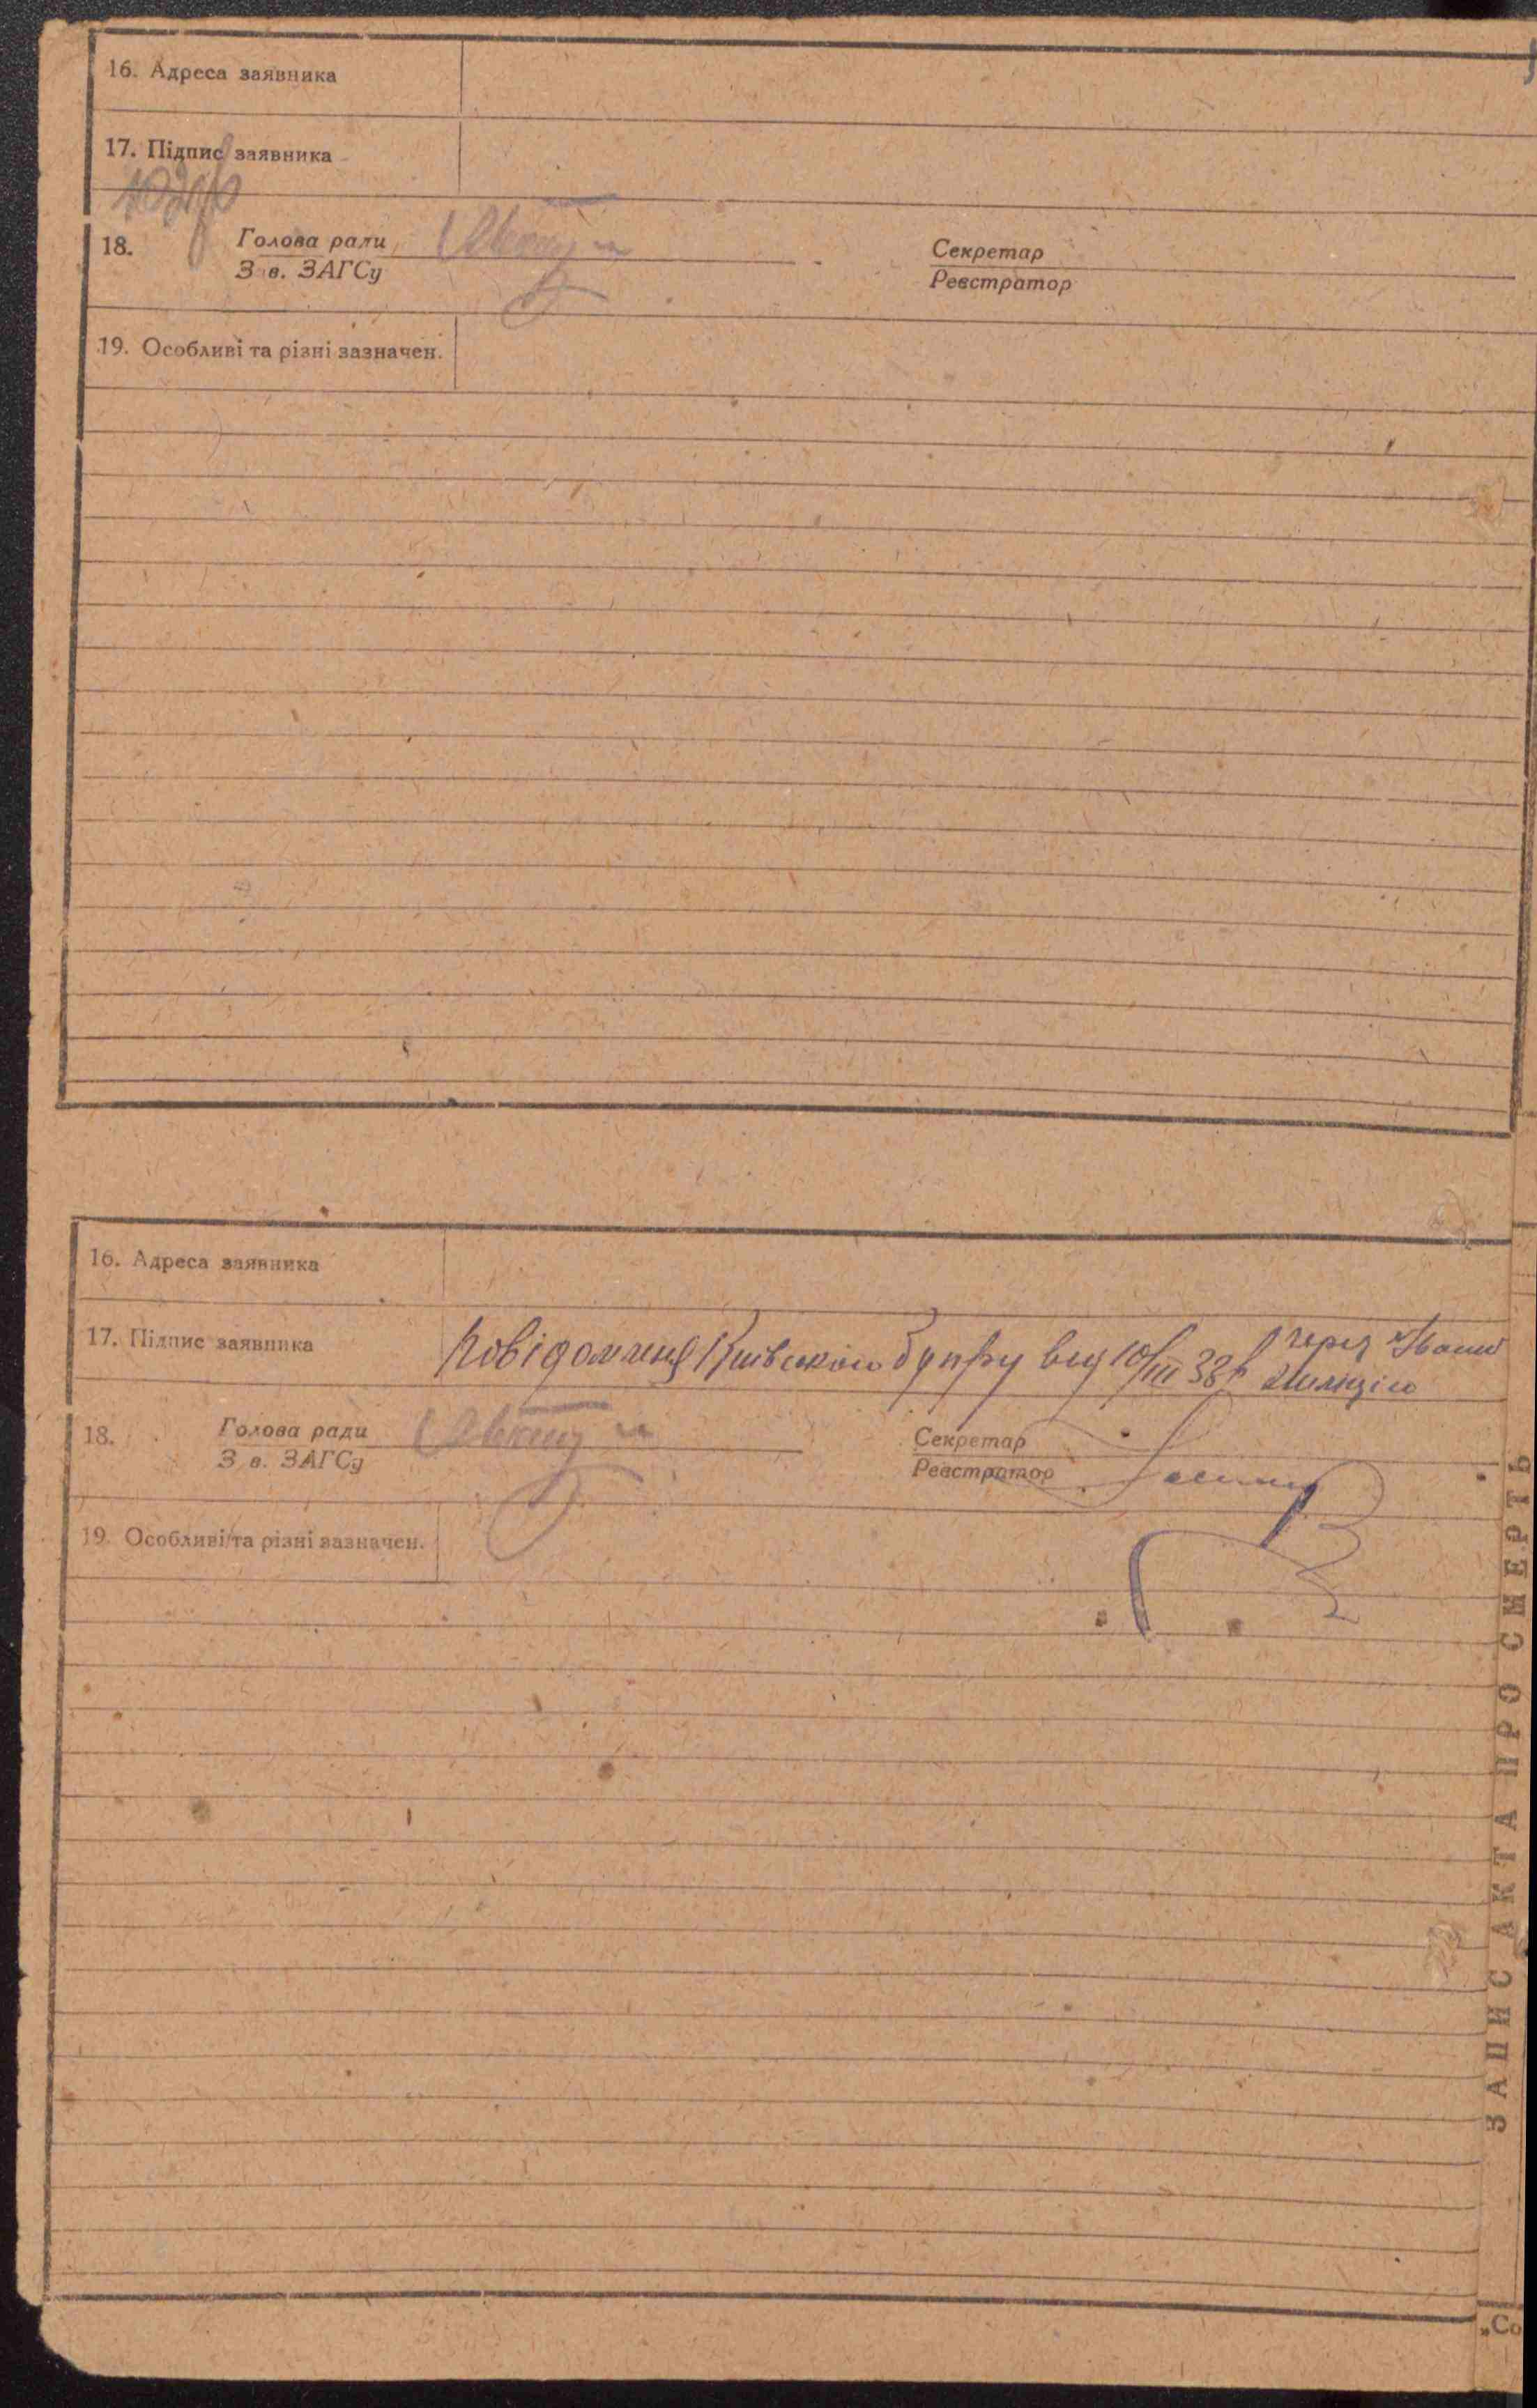 16. Адреса заявника
17. Підпис заявника
18. Голова ради
Зав. ЗАГСу
Секретар
Реєстратор
19. Особливі та різні зазначен.
16. Адреса заявника
17. Підпис заявника Повідомленя Київского Бупру від 10/III 38р через
міліцію
18. Голова ради
Зав. ЗАГСу
Секретар
Реєстратор
19. Особливі та різні зазначен.
ЗАПИС АКТА ПРО СМЕРТЬ
„Со